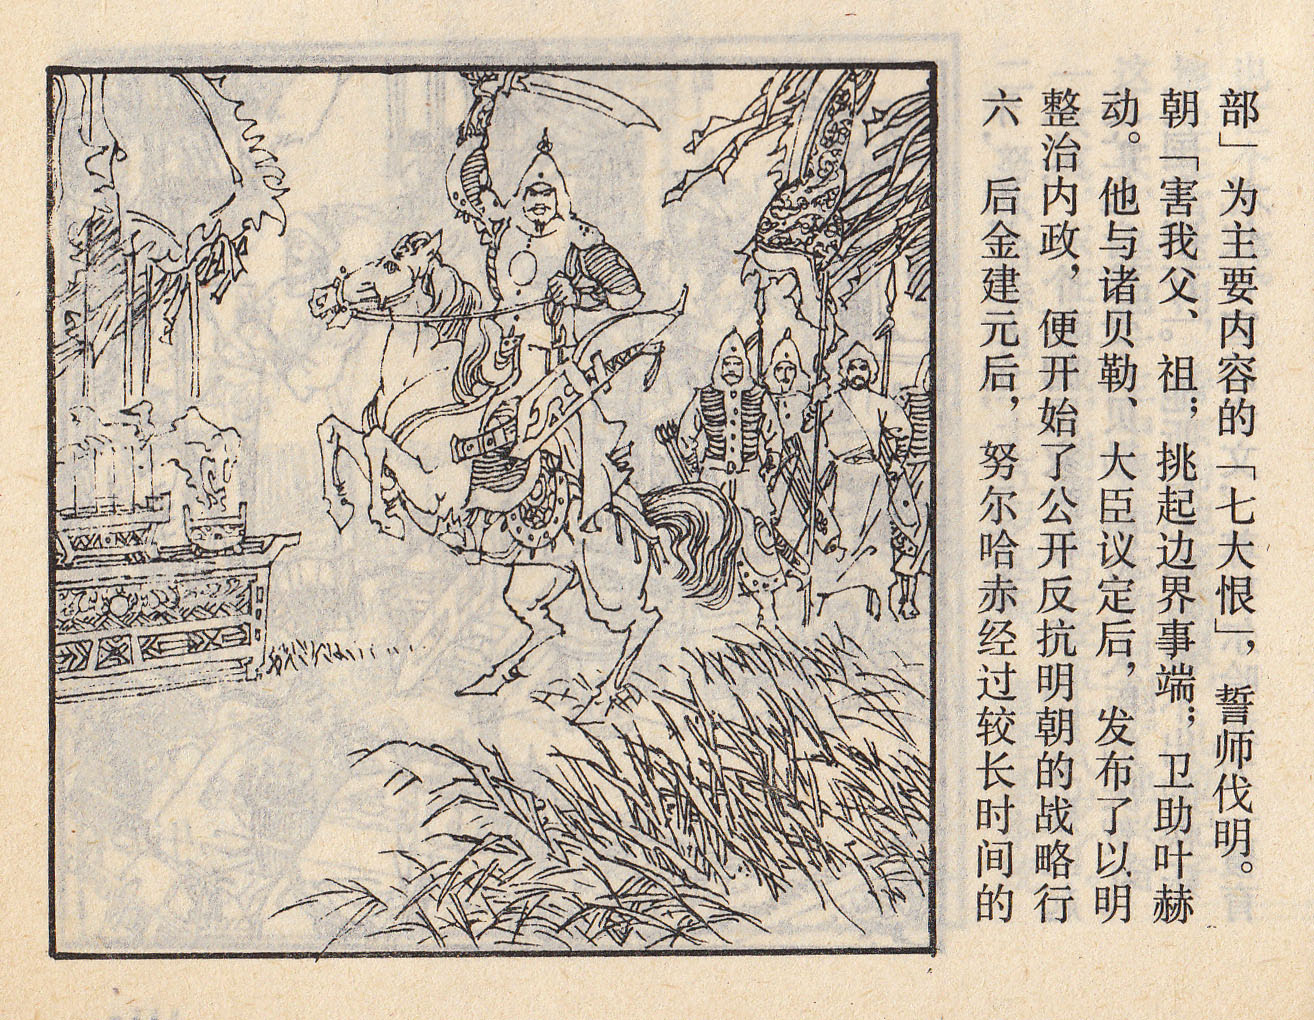 六、后金建元后，努尔哈赤经过较长时间的
整治内政，便开始了公开反抗明朝的战略行
动。他与诸贝勒、大臣议定后，发布了以明
朝「害我父、祖；挑起边界事端；卫助叶赫
部」为主要内容的「七大恨」，誓师伐明。